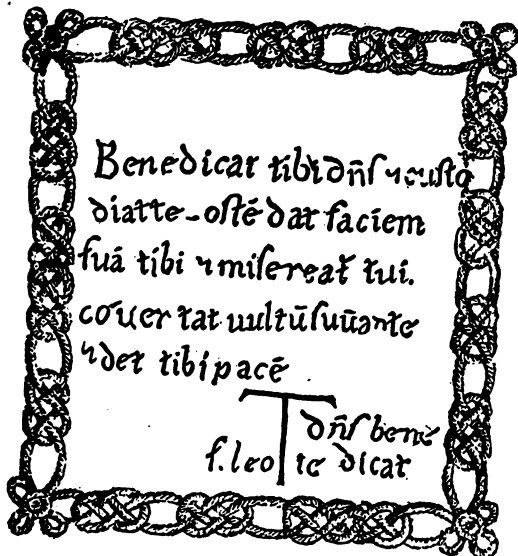 Benedicat tibi dn̄s ⁊ custo
diat te - ostēdat faciem
suā tibi ⁊ misereat̄ tui.
cōuertat uultū suū ante
⁊ det tibi pacē
dn̄s bene
f. leo T te dicat